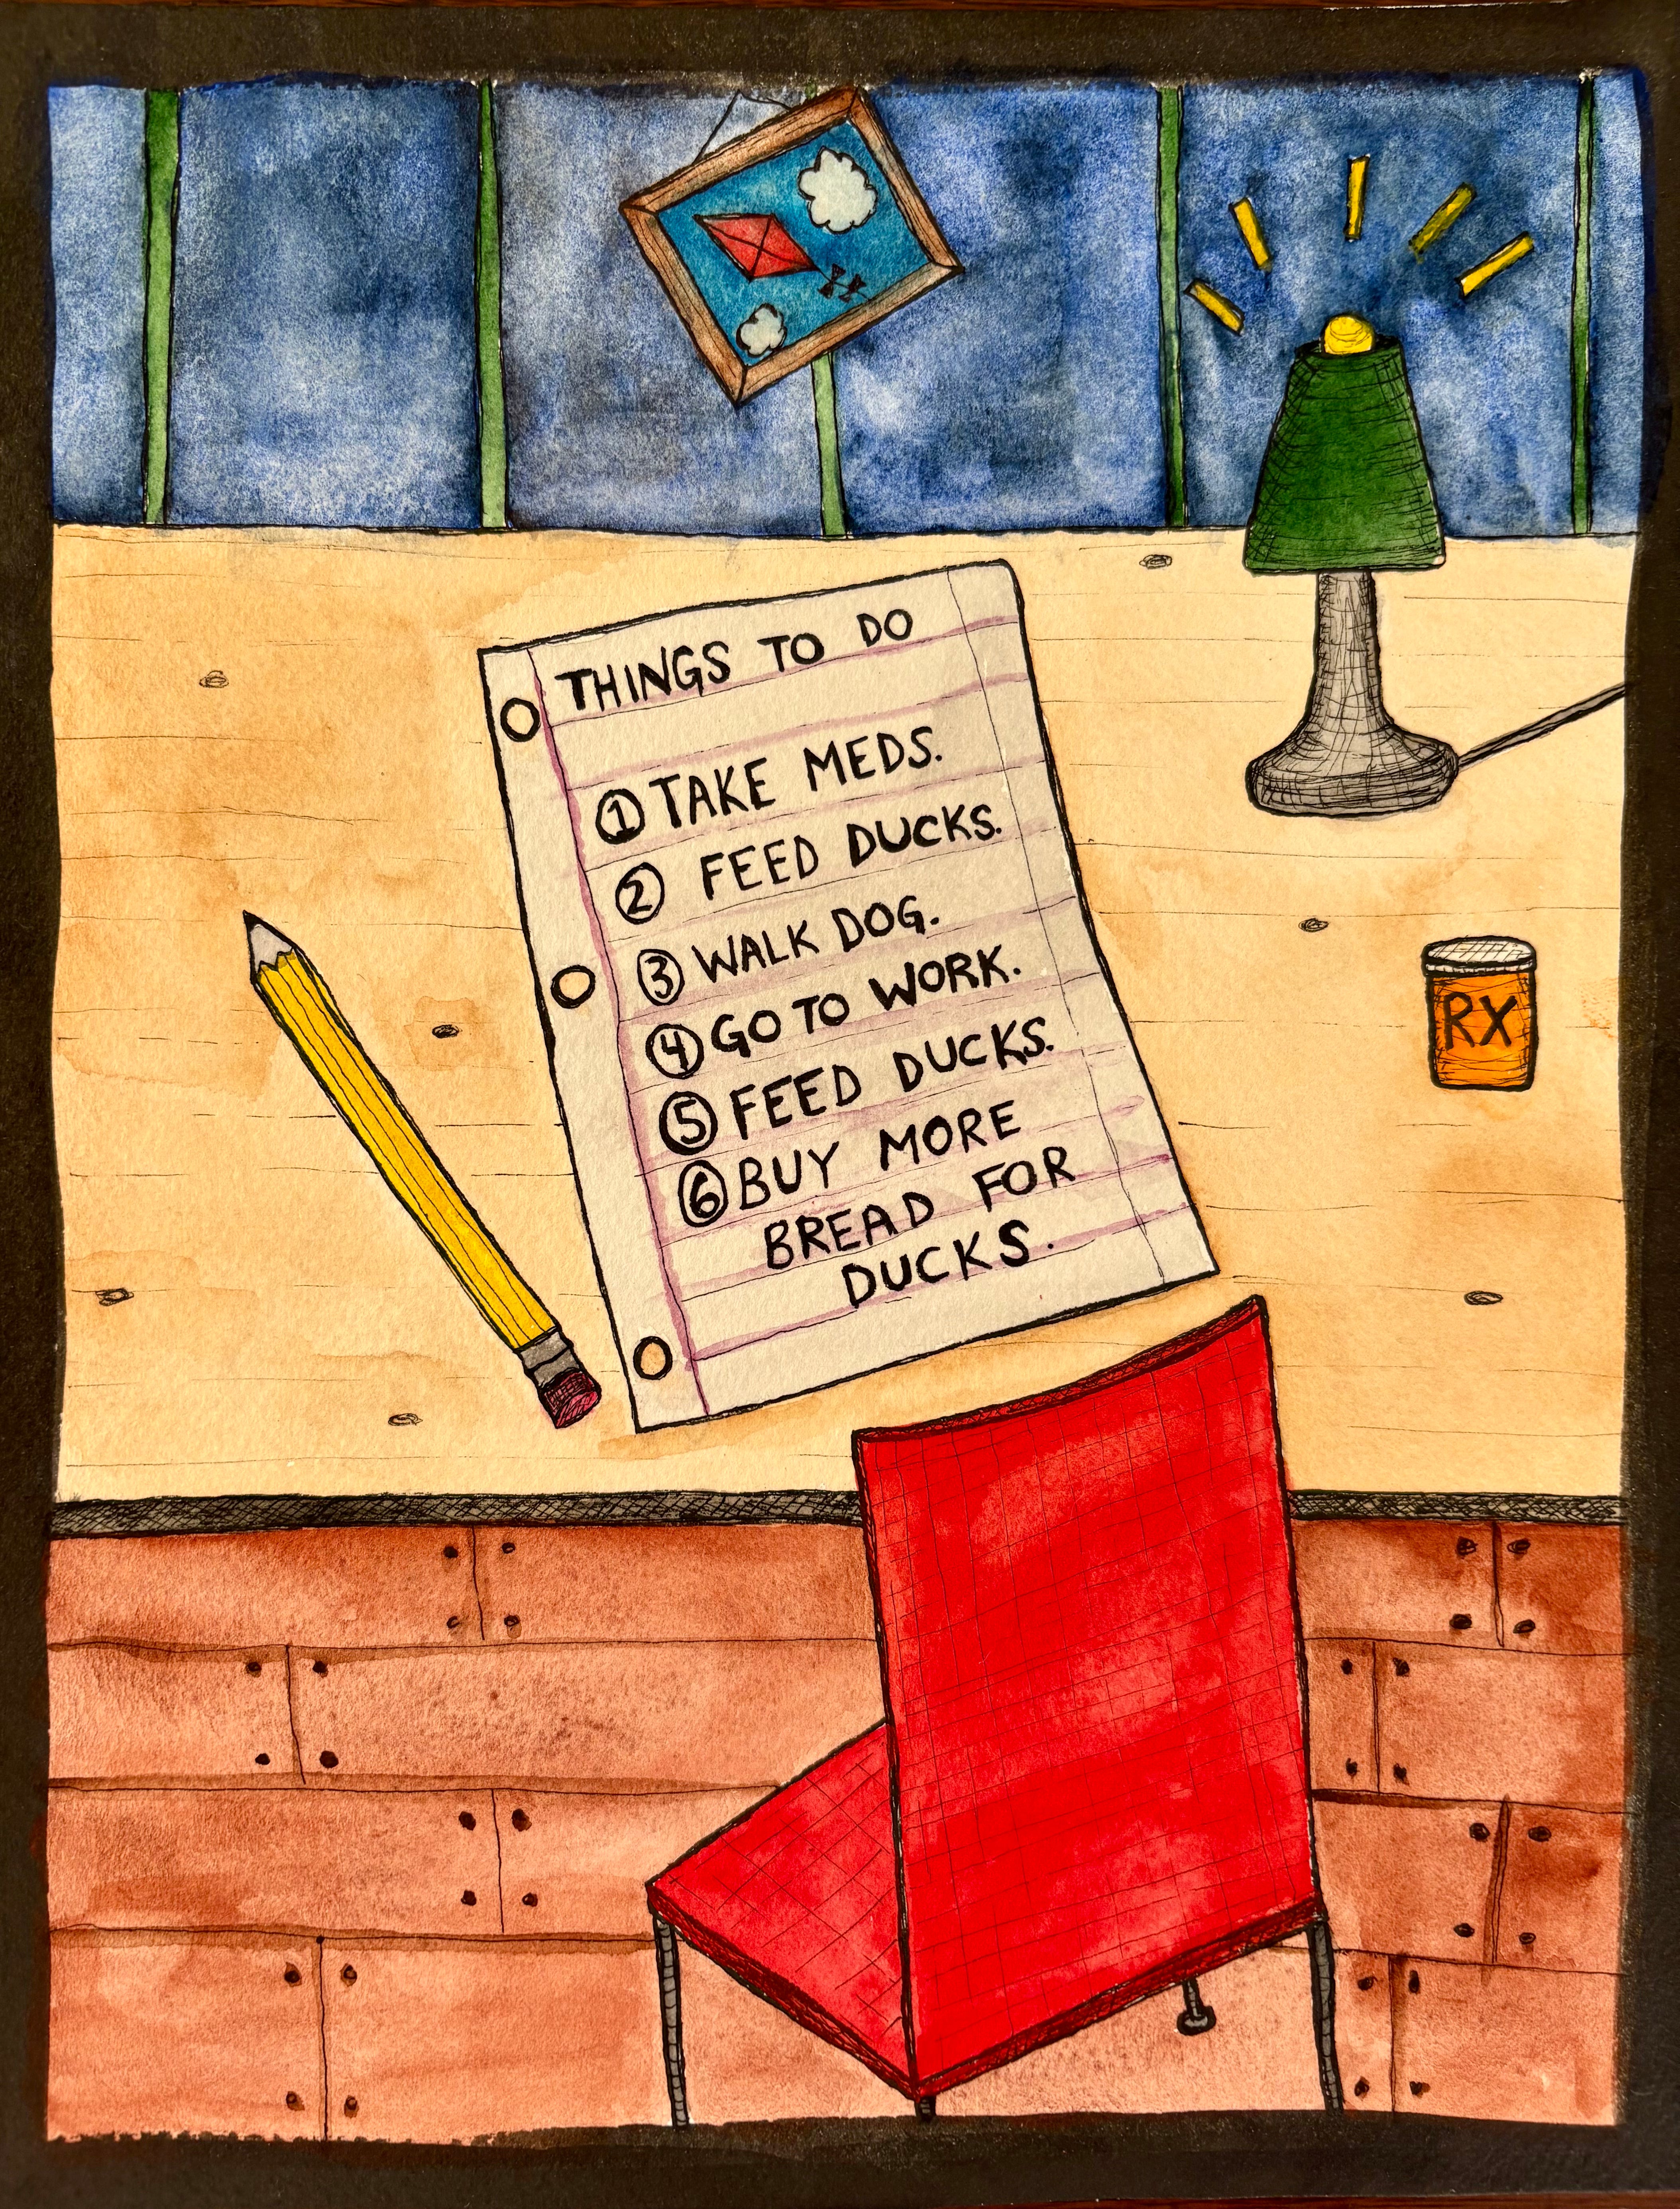 THINGS TO DO
① TAKE MEDS.
② FEED DUCKS.
③ WALK DOG.
④ GO TO WORK.
⑤ FEED DUCKS.
⑥ BUY MORE
BREAD FOR
DUCKS.
RX